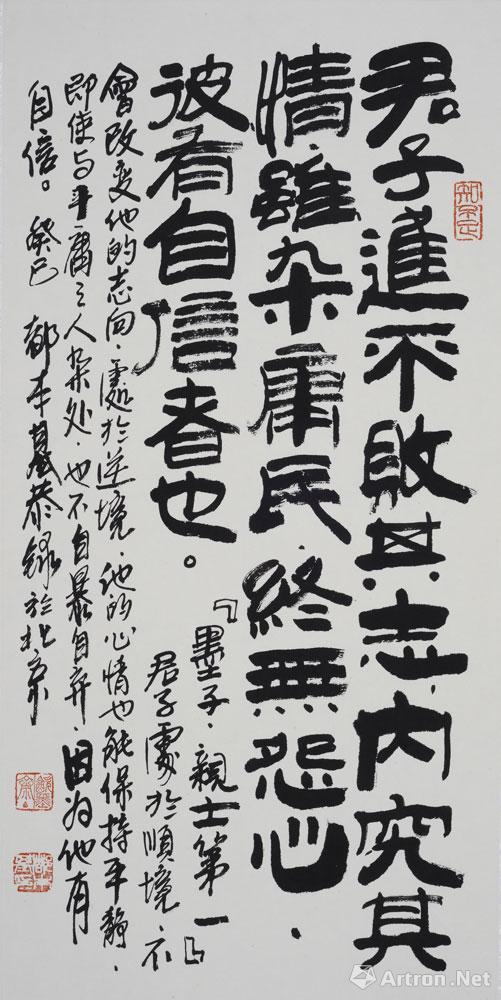 君子進不敗其志内究其
情雖杂庸民終無怨心
彼有自信者也。
『墨子·親士第一』
君子處於順境、不
會改变他的志向、處於逆境、他的心情也能保持平静、
即使与平庸之人杂处、也不自暴自弃、因为他有
自信。癸巳 都本基恭録於北京
Artron.Net